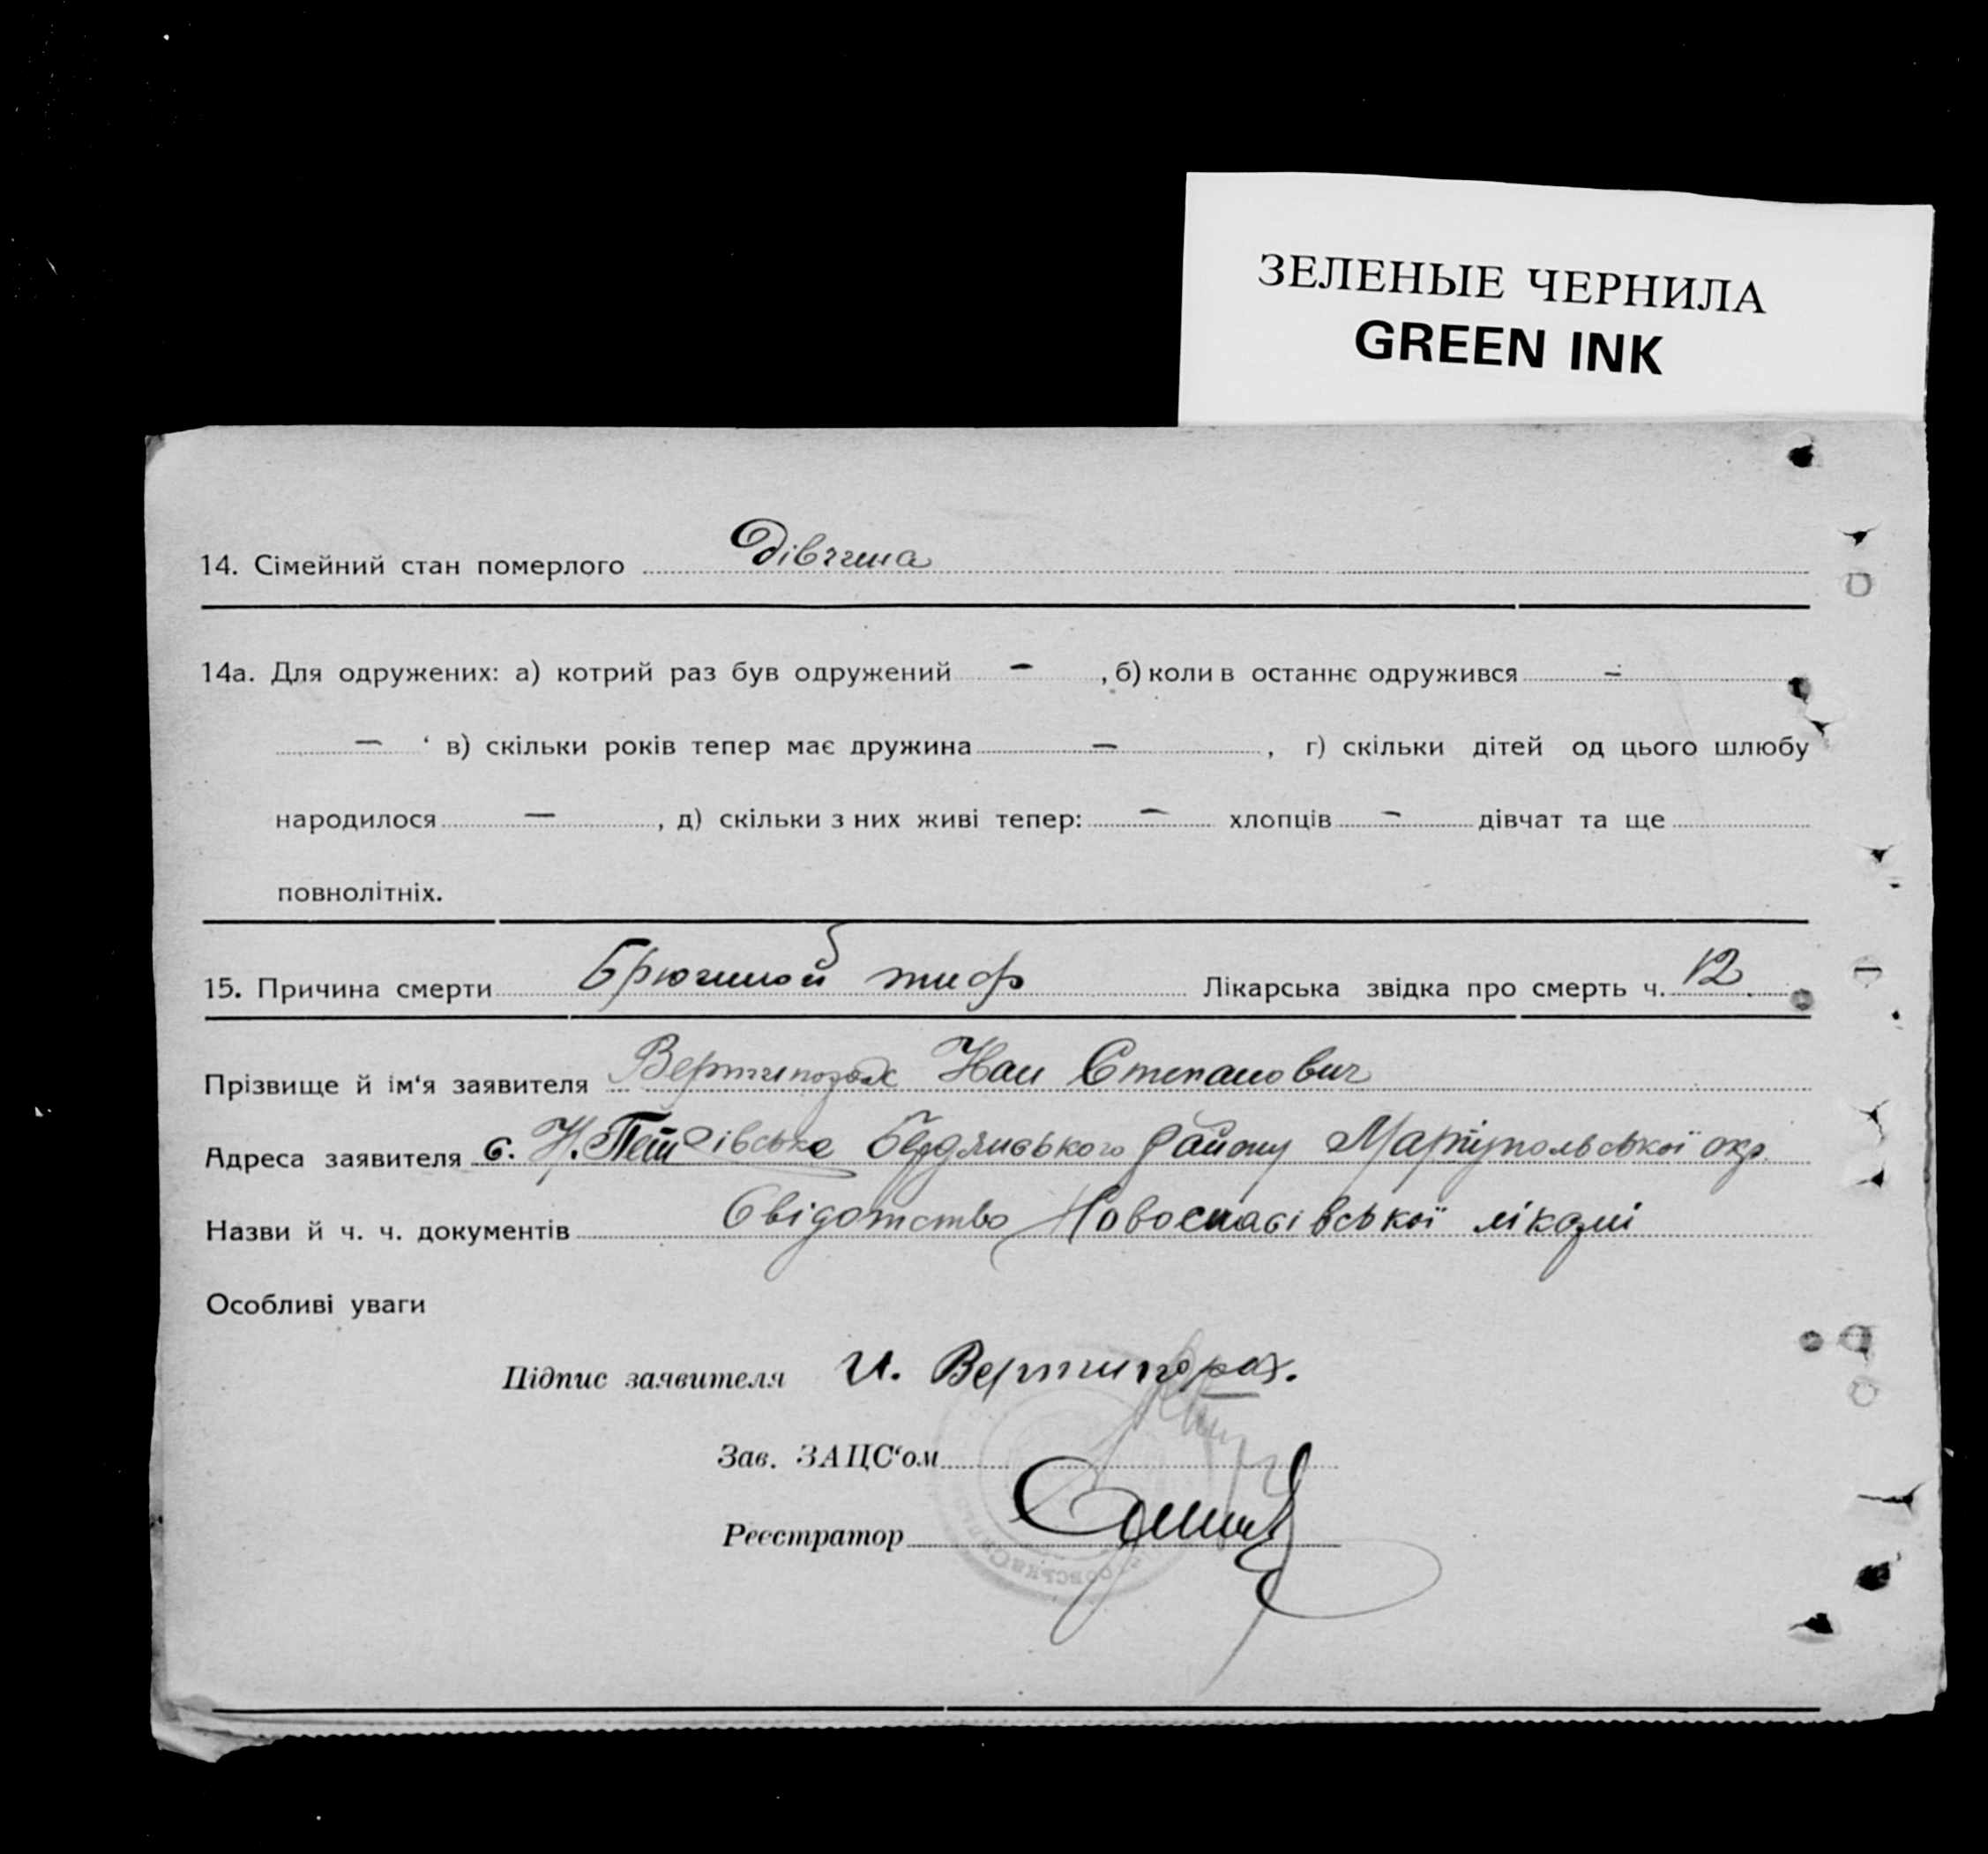 ЗЕЛЕНЫЕ ЧЕРНИЛА
GREEN INK
14. Сімейний стан померлого Дівчина
14а. Для одружених: а) котрий раз був одружений — , б) коли в останнє одружився —
— ‘ в) скільки років тепер має дружина — , г) скільки дітей од цього шлюбу
народилося — , д) скільки з них живі тепер: — хлопців — дівчат та ще
повнолітніх.
15. Причина смерти Брюшной тиф Лікарська звідка про смерть ч. 12.
Прізвище й ім‘я заявителя Вертипорах Иван Степанович
Адреса заявителя с. Н. Бердянського району Маріупольської окр.
Назви й ч. ч. документів Свідотство Новоспасівської лікарні
Особливі уваги
Підпис заявителя И. Вертипорах.
Зав. ЗАЦС‘ом
Реєстратор